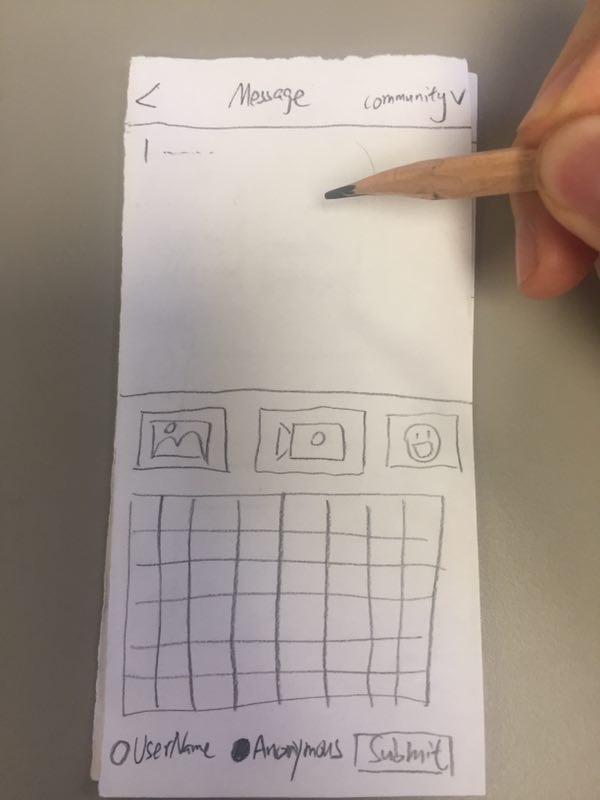 < Message community v
UserName Anonymous Submit